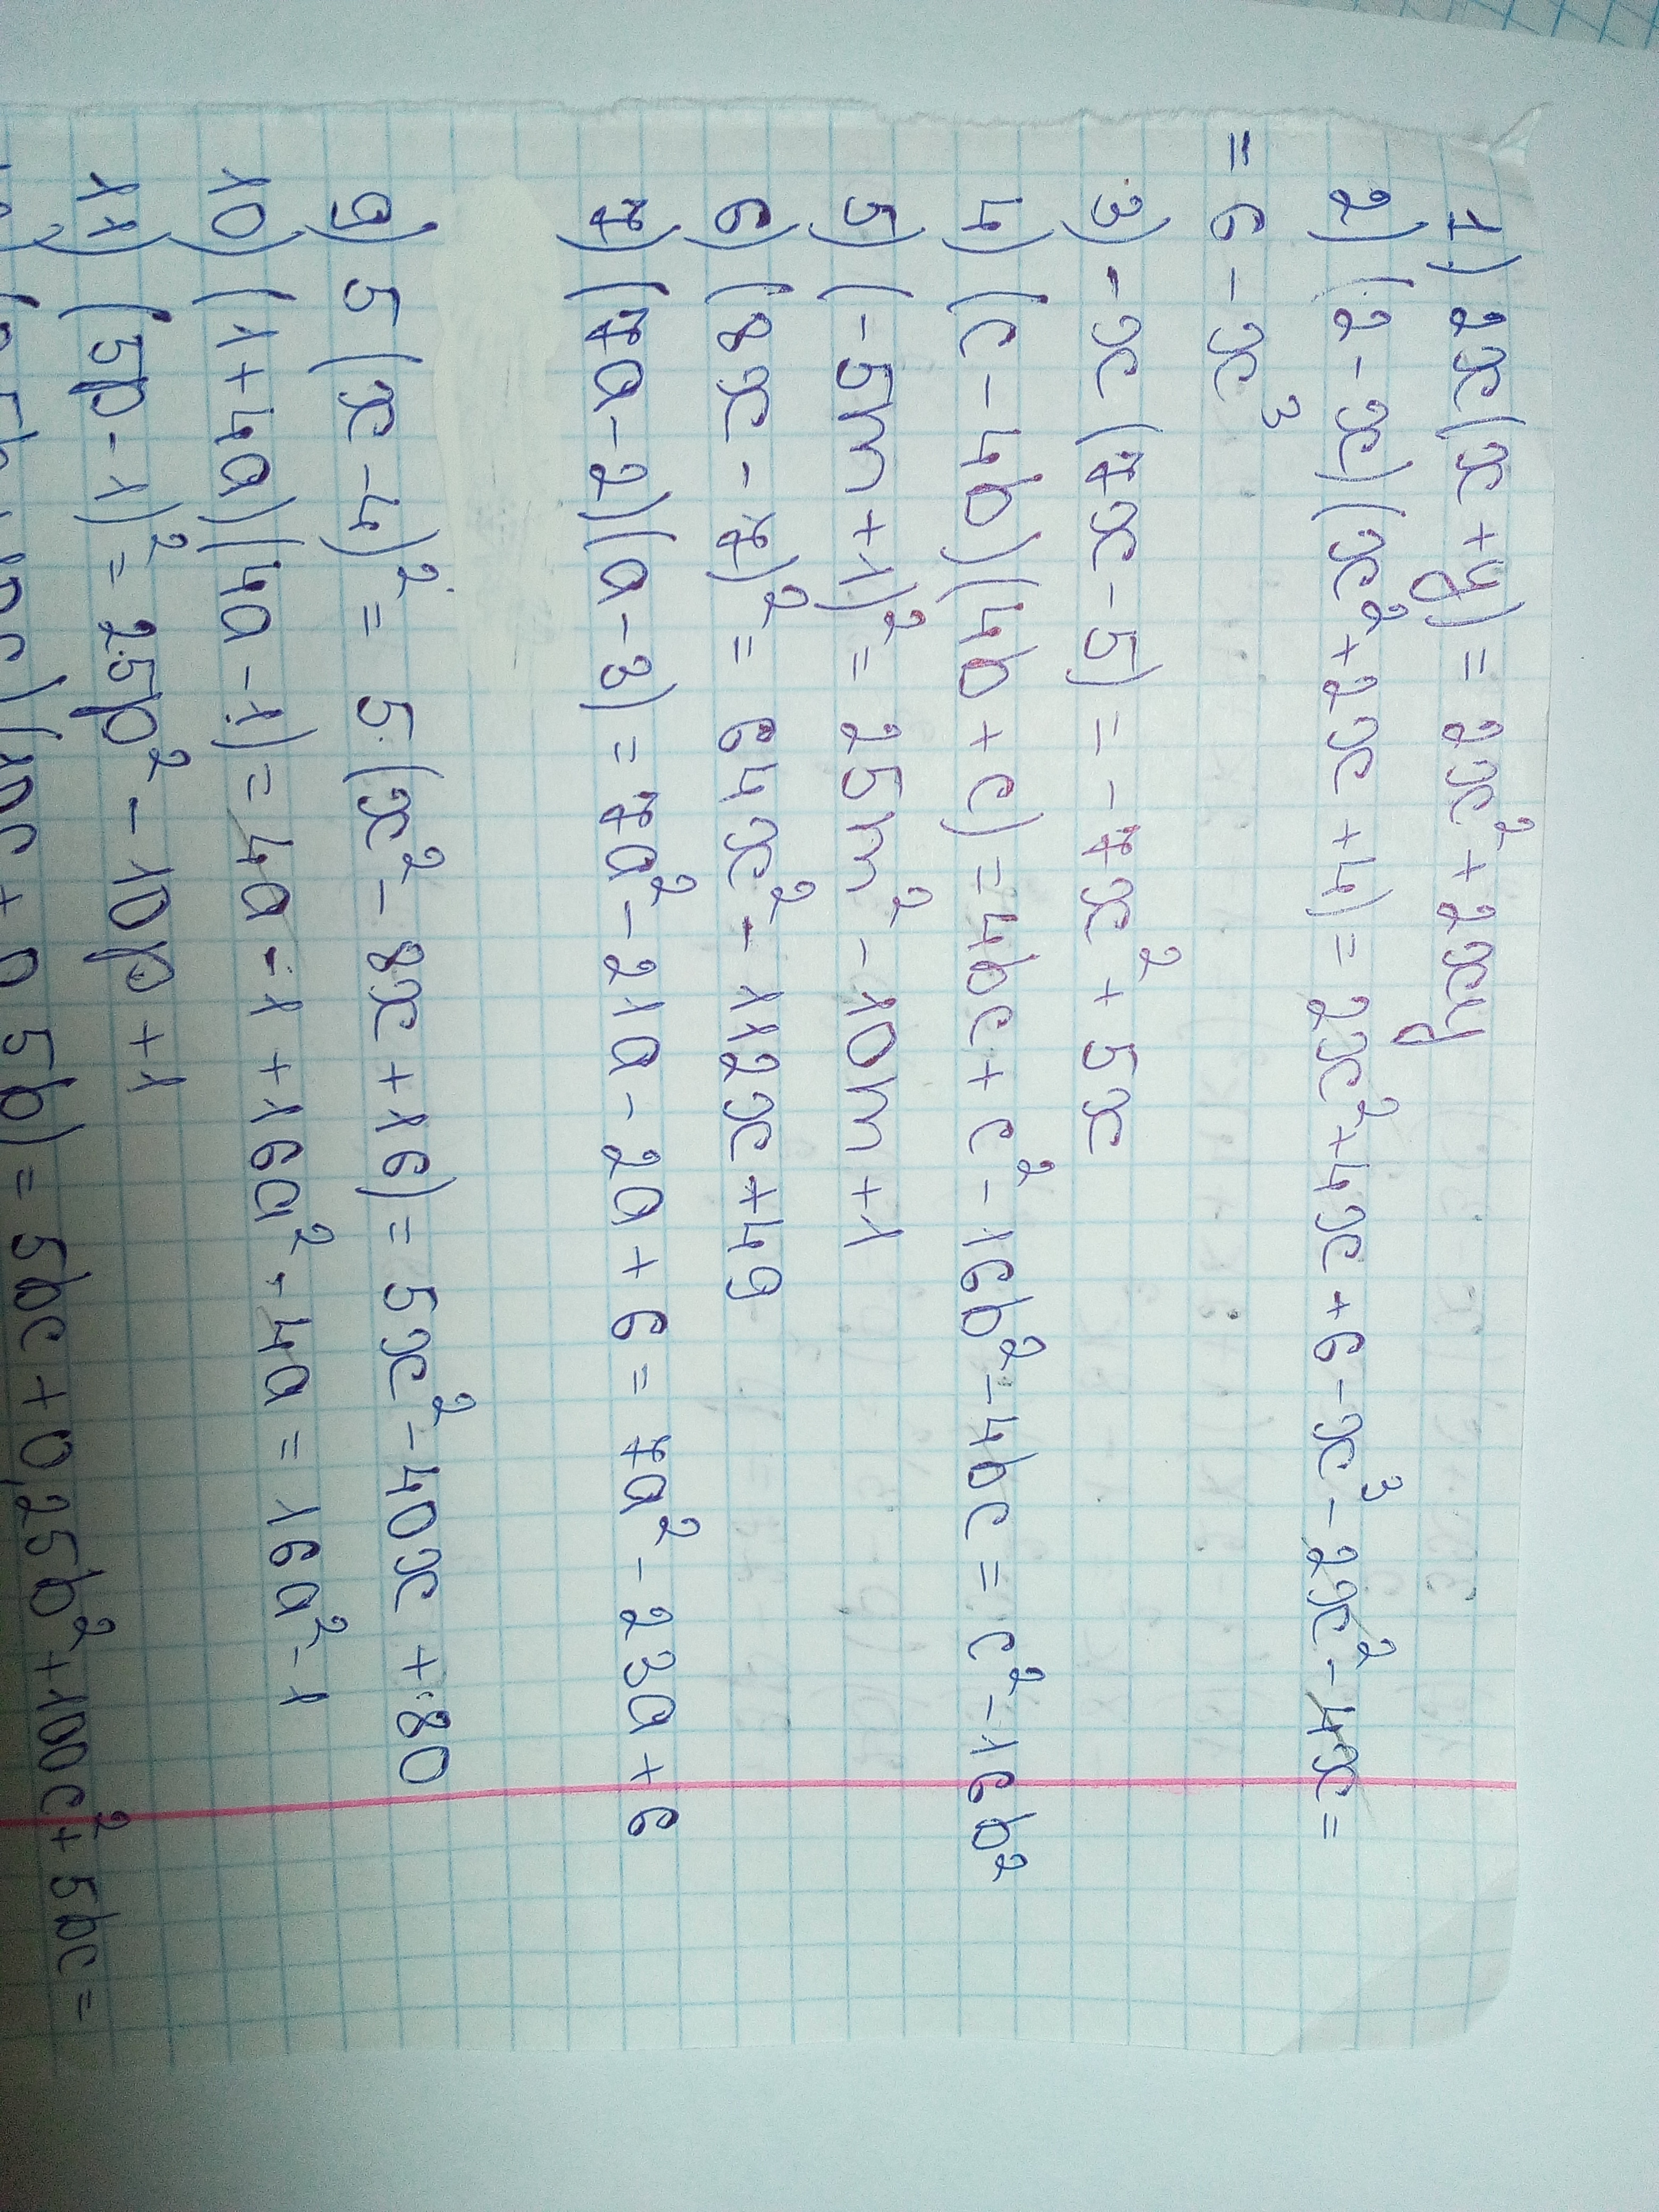 1) 2x(x+y) = 2x²+2xy
2) (2-x)(x²+2x+4) = 2x²+4x+6-x³-2x²-4x=
=6-x³
3) -x(7x-5) = -7x²+5x
4) (c-4b)(4b+c) = 4bc+c²-16b²-4bc = c²-16b²
5) (-5m+1)² = 25m²-10m+1
6) (8x-7)² = 64x²-112x+49
7) (7a-2)(a-3) = 7a²-21a-2a+6 = 7a²-23a+6
9) 5(x-4)² = 5(x²-8x+16) = 5x²-40x+80
10) (1+4a)(4a-1) = 4a-1+16a²-4a = 16a²-1
11) (5p-1)² = 25p²-10p+1
10c+0,5b) = 5bc+0,25b²+100c²+5bc=